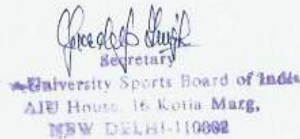 Secretary
University Sports Board of India
AIU House, 16 Kotla Marg,
NEW DELHI-110002